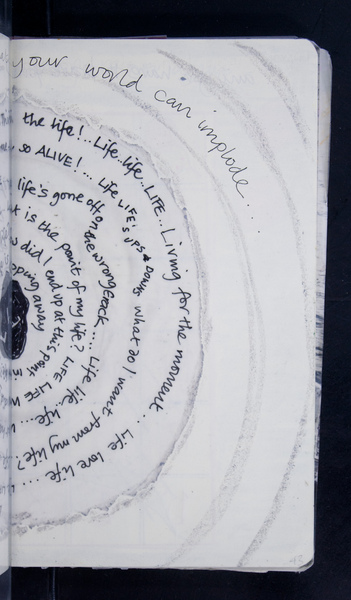 your world can implode...
the life!.. Life.. life.. LIFE.. Living for the moment... Life love life....
so ALIVE!... Life LIFE! LIFE'S UPS & DOWNS What do I want from my life?
life's gone off on the wrong track.... Life life.. life.. life....
is the point of my life? LIFE LIFE
did I end up at this point in
away